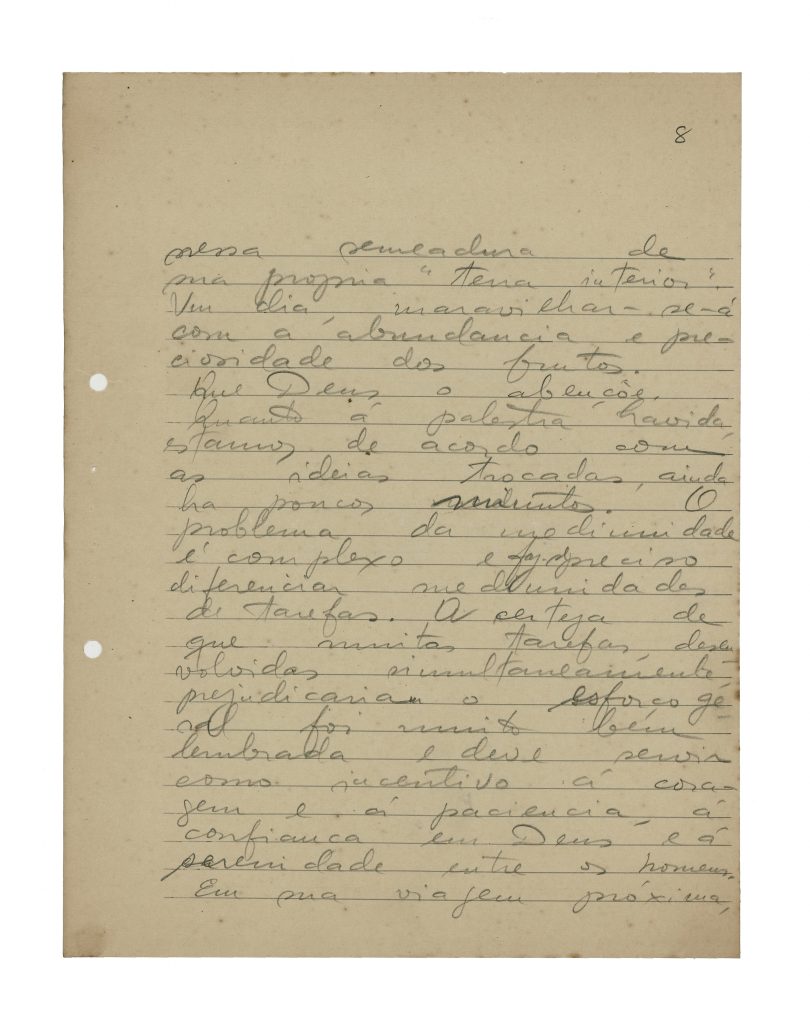 8
nessa semeadura de
sua propria "terra interior".
Um dia, maravilhar-se-á
com a abundancia e pre-
ciosidade dos frutos.
Que Deus o abençôe.
Quanto á palestra havida,
estamos de acordo com
as ideias trocadas, ainda
ha poucos minutos. O
problema da mediunidade
é complexo e é preciso
diferenciar mediunidades
de tarefas. A certeza de
que muitas tarefas, desen
volvidas simultaneamente
prejudicariam o esforço ge
ral foi muito bem
lembrada e deve servir
como incentivo á cora-
gem e á paciencia, á
confiança em Deus e á
serenidade entre os homens.
Em sua viagem próxima,